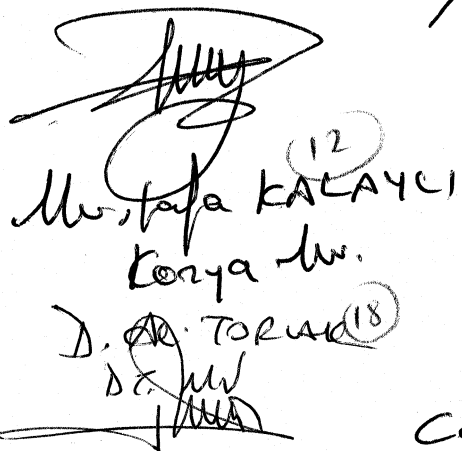 12
Mustafa KALAYCI
Konya Mv.
D. Ali TORLAK 18
C.